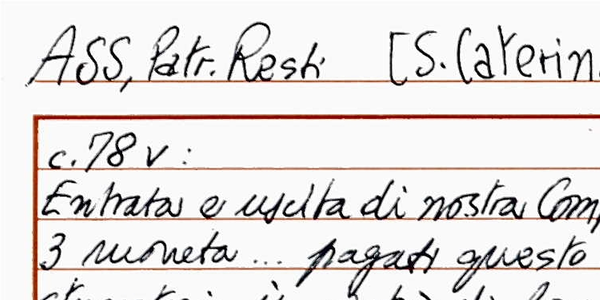 ASS, Patr. Resti [S. Caterin
c. 78 v:
Entrata e uscita di nostra Com
3 moneta ... pagati questo